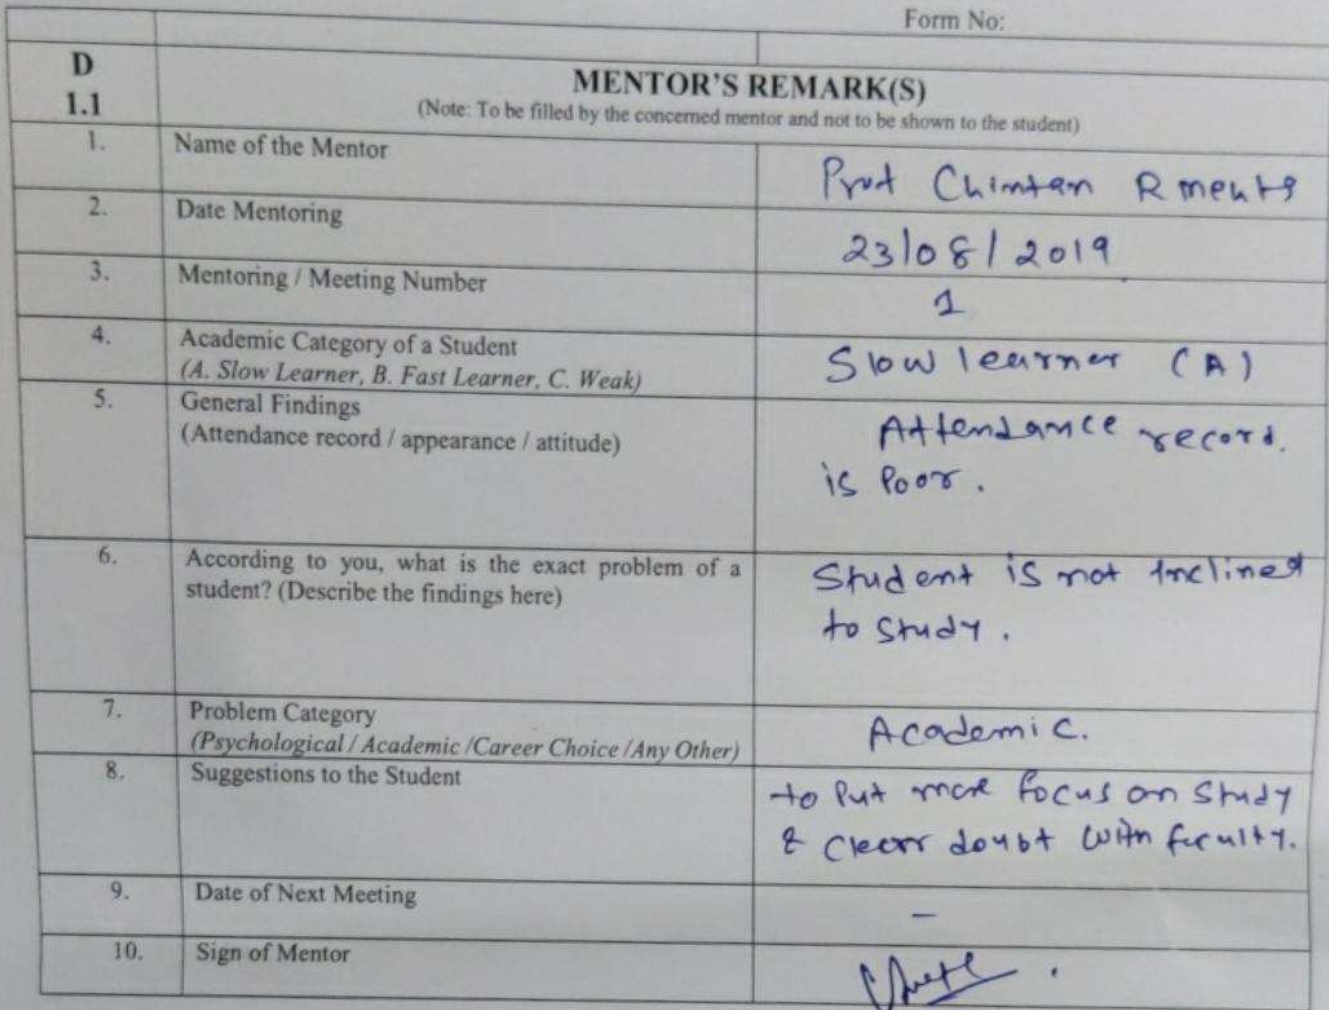 Form No:
D
1.1
MENTOR'S REMARK(S)
(Note: To be filled by the concerned mentor and not to be shown to the student)
1. Name of the Mentor
Prof Chintan R
2. Date Mentoring
23/08/2019
3. Mentoring / Meeting Number
1
4. Academic Category of a Student
(A. Slow Learner, B. Fast Learner, C. Weak)
Slow learner (A)
5. General Findings
(Attendance record / appearance / attitude)
Attendance record.
is Poor.
6. According to you, what is the exact problem of a
student? (Describe the findings here)
Student is not inclined
to study.
7. Problem Category
(Psychological / Academic /Career Choice /Any Other)
Academic.
8. Suggestions to the Student
to Put more focus on study
& Clear doubt with faculty.
9. Date of Next Meeting
-
10. Sign of Mentor